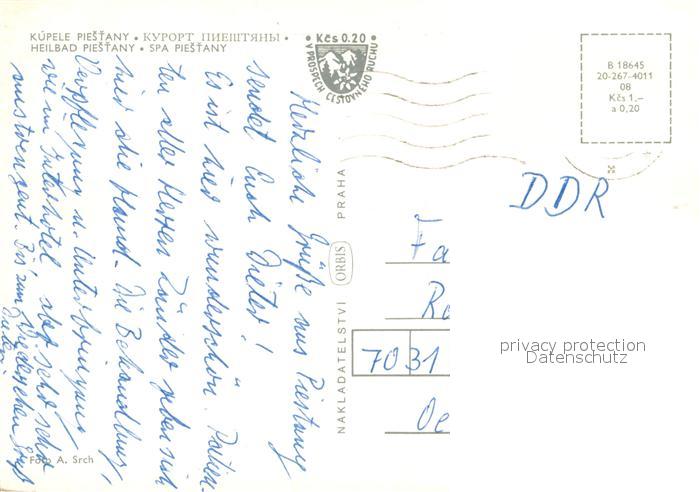 KÚPELE PIEŠŤANY • КУРОРТ ПИЕШТЯНЫ •
HEILBAD PIEŠŤANY • SPA PIEŠŤANY
• Kčs 0.20 •
V PROSPECH CESTOVNÉHO RUCHU
B 18645
20-267-4011
08
Kčs 1,–
a 0,20
Herzliche Grüße aus Piestany
sendet Euch Dieter!
Es ist hier wunderschön. Patien-
ten aller Herren Länder geben sich
hier die Hand. Die Behandlung,
Verpflegung u. Unterbringung
wie im Interhotel, aber sehr sehr
anstrengent. Bis zum Wiedersehen Grüß
Dieter
NAKLADATELSTVÍ ORBIS PRAHA
DDR
Fa
Ro
7031
Oe
privacy protection
Datenschutz
Foto A. Srch